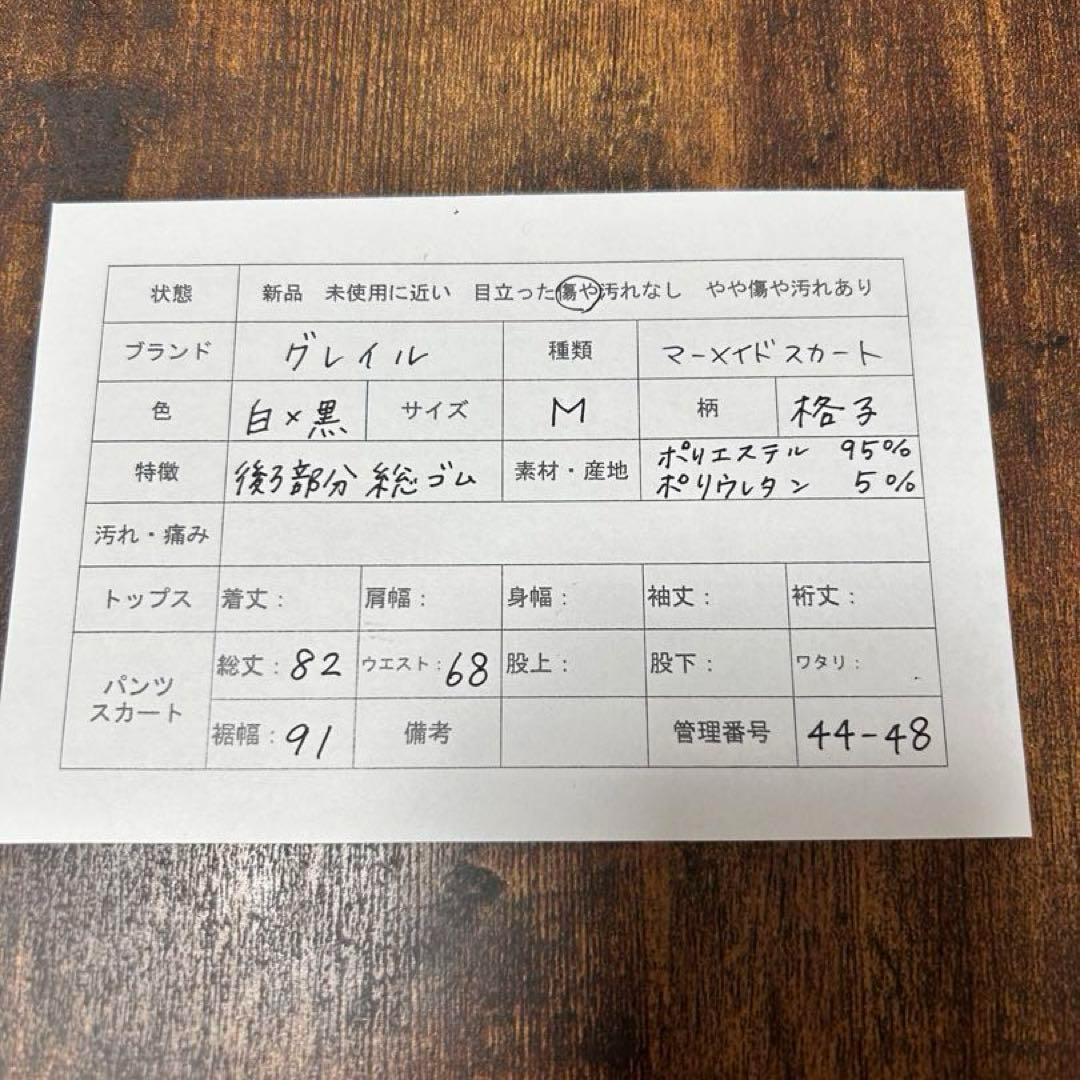 状態 新品 未使用に近い 目立った傷や汚れなし やや傷や汚れあり
ブランド グレイル 種類 マーメイドスカート
色 白×黒 サイズ M 柄 格子
特徴 後ろ部分 総ゴム 素材・産地 ポリエステル 95%
ポリウレタン 5%
汚れ・痛み
トップス 着丈: 肩幅: 身幅: 袖丈: 裄丈:
パンツ
スカート
総丈:82 ウエスト:68 股上: 股下: ワタリ:
裾幅:91 備考 管理番号 44-48